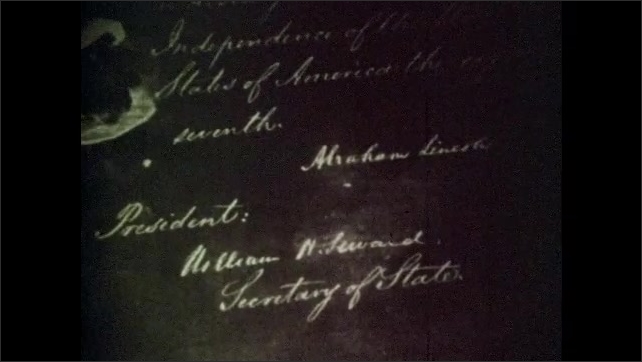 Independence of the
States of America the
seventh.
Abraham Lincoln
President:
William H. Seward.
Secretary of State.